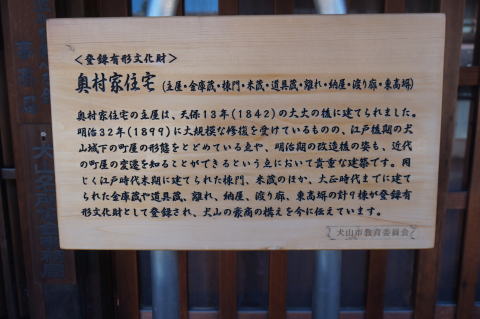 ＜登録有形文化財＞
奥村家住宅（主屋・金庫蔵・棟門・米蔵・道具蔵・離れ・納屋・渡り廊・東高塀）
奥村家住宅の主屋は、天保13年(1842)の大火の後に建てられました。
明治32年(1899)に大規模な修復を受けているものの、江戸後期の犬
山城下の町屋の形態をとどめている点や、明治期の改造後の姿も、近代
の町屋の変遷を知ることができるという点において貴重な建築です。同
じく江戸時代末期に建てられた棟門、米蔵のほか、大正時代までに建て
られた金庫蔵や道具蔵、離れ、納屋、渡り廊、東高塀の計9棟が登録有
形文化財として登録され、犬山の豪商の構えを今に伝えています。
犬山市教育委員会